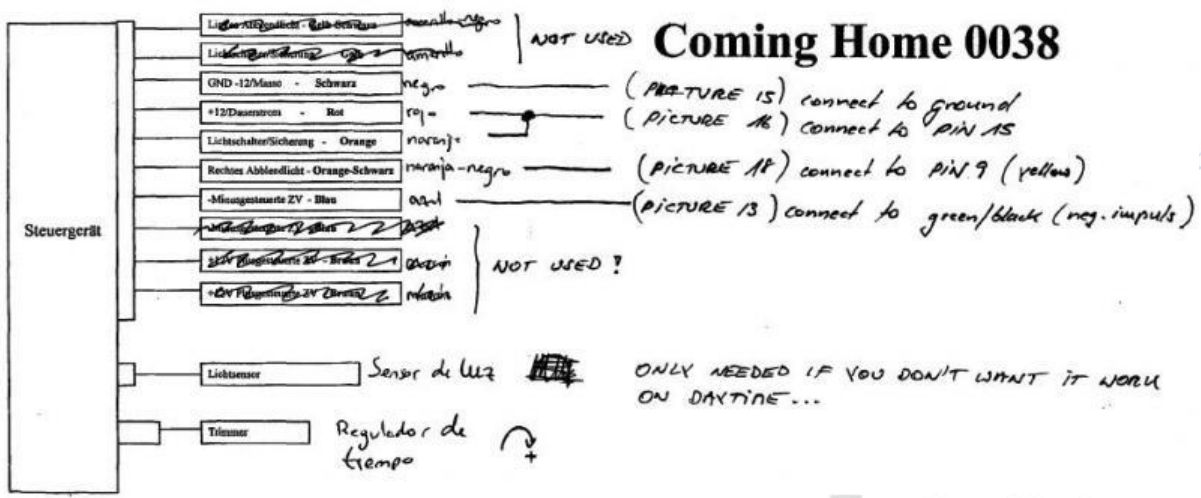 Coming Home 0038
Linkes Abblendlicht - Gelb-Schwarz amarillo-negro
Lichtschalter/Sicherung - Gelb amarillo
NOT USED
GND -12/Masse - Schwarz negro
(PICTURE 15) connect to ground
+12/Dauerstrom - Rot rojo
(PICTURE 16) connect to PIN 15
Lichtschalter/Sicherung - Orange naranja
Rechtes Abblendlicht - Orange-Schwarz naranja-negro
(PICTURE 18) connect to PIN 9 (yellow)
-Minusgesteuerte ZV - Blau azul
(PICTURE 13) connect to green/black (neg. impuls)
Steuergerät
-Minusgesteuerte ZV - Blau
+12V Plusgesteuerte ZV - Braun marrón
+12V Plusgesteuerte ZV - Braun marrón
NOT USED!
Lichtsensor Sensor de luz
ONLY NEEDED IF YOU DON'T WANT IT WORK
ON DAYTIME...
Trimmer Regulador de
tiempo
+